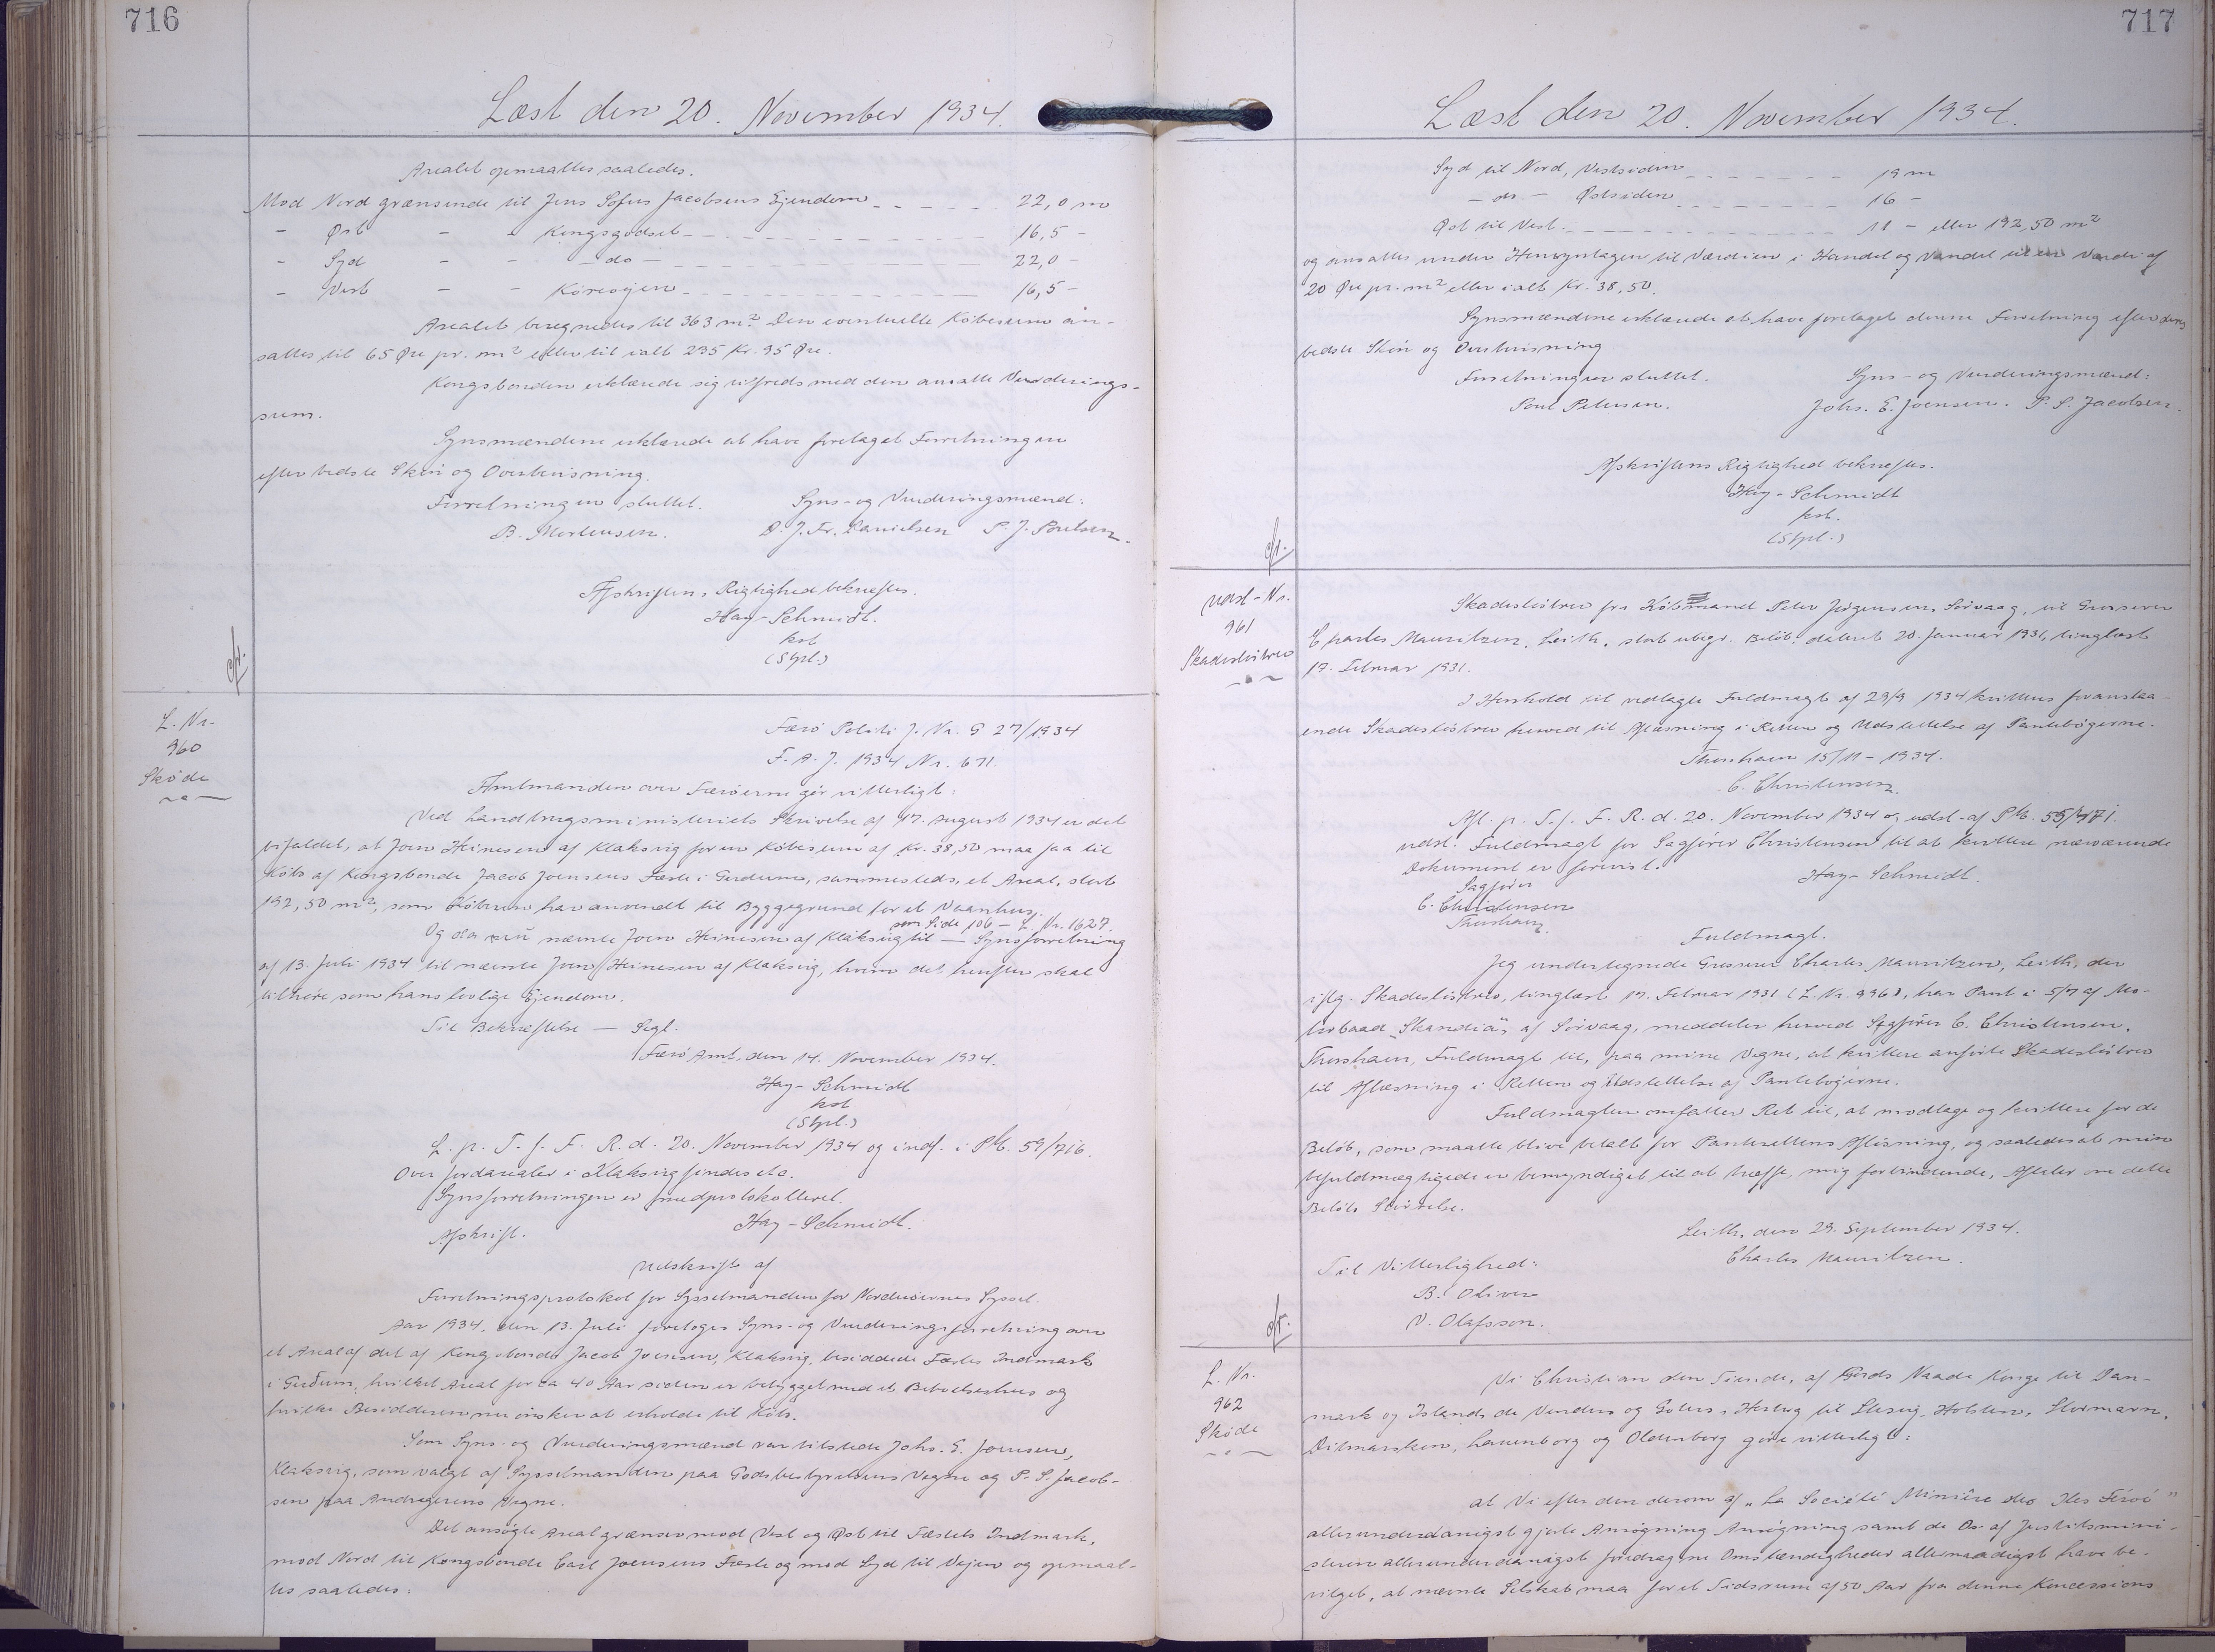 716
Læst den 20. November 1934.
Arealet opmaaltes saaledes.
Mod Nord grænsende til Jens Sofus Jacobsens Ejendom 22,0 m
- Øst - - Kongsgodset 16,5 -
- Syd - - - do - 22,0 -
- Vest - - Körevejen 16,5 -
Arealet beregnedes til 363 m². Den eventuelle Köbesum an-
sattes til 65 Øre pr. m² eller til ialt 235 Kr. 95 Øre.
Kongsbonden erklærede sig tilfreds med den ansatte Vurderings-
sum.
Synsmændene erklærede at have foretaget Forretningen
efter bedste Skön og Overbevisning.
Forretningen sluttet. Syns- og Vurderingsmænd:
B. Mortensen. D. J. Fr. Danielsen P. J. Poulsen.
Afskriftens Rigtighed bekræftes.
Hay-Schmidt.
kst
(Stpl.)
L. Nr.
960
Sköde
Færö Politi J. Nr. G 27/1934
F. A. J. 1934 Nr. 671.
Amtmanden over Færöerne gör vitterligt:
Ved Landbrugsministeriets Skrivelse af 17. August 1934 er det
bifaldet, at Joen Heinesen af Klaksvig for en Köbesum af Kr. 38,50 maa faa til
Köbs af Kongsbonde Jacob Joensens Fæste i Gerdum, sammesteds, et Areal, stort
192,50 m², som Köberen har anvendt til Byggegrund for et Vaanhus.
som Side 106 - L. Nr. 1627.
Og da nu nævnte Joen Heinesen af Klaksvig til — Synsforretning
af 13. Juli 1934 til nævnte Joen Heinesen af Klaksvig, hvem det herefter skal
tilhöre som hans lovlige Ejendom.
Til Bekræftelse — Segl.
Færö Amt, den 14. November 1934.
Hay-Schmidt
kst
(Stpl.)
L. p. T. f. F. R. d. 20. November 1934 og indf. i Ptb. 59/716.
Over Jordarealer i Klaksvig findes etc.
Synsforretningen er medprotokolleret.
Afskrift. Hay-Schmidt.
Udskrift af
Forretningsprotokol for Sysselmanden for Norderöernes Syssel.
Aar 1934, den 13. Juli foretoges Syns- og Vurderingsforretning over
et Areal af det af Kongsbonde Jacob Joensen, Klaksvig, besiddede Fæstes Indmark
i Gerðum, hvilket Areal for ca 40 Aar siden er bebygget med et Beboelseshus og
hvilke Besidderen nu önsker at erholde til Köbs.
Som Syns- og Vurderingsmænd var tilstede Johs. E. Joensen,
Klaksvig, som valgt af Sysselmanden paa Godsbestyrelsens Vegne og P. S. Jacob-
sen paa Andragerens Vegne.
Det ansögte Areal grænser mod Vest og Øst til Fæstets Indmark,
mod Nord til Kongsbonde Carl Joensens Fæste og mod Syd til Vejen og opmaal-
tes saaledes:
717
Læst den 20. November 1934.
Syd til Nord, Vestsiden 19 m
- do - Østsiden 16 -
Øst til Vest. 11 - eller 192,50 m²
og ansattes under Hensyntagen til Værdien i Handel og Vandel til en Værdi af
20 Øre pr. m² eller ialt Kr. 38,50.
Synsmændene erklærede at have foretaget denne Forretning efter deres
bedste Skön og Overbevisning
Forretningen sluttet. Syns- og Vurderingsmænd:
Poul Petersen. Johs. E. Joensen. P. S. Jacobsen.
Afskriftens Rigtighed bekræftes.
Hay-Schmidt
kst.
(Stpl.)
Udsl-Nr.
961
Skadeslösbrev
Skadeslösbrev fra Köbmand Peter Jörgensen, Sörvaag, til Grosserer
Charles Mauritzen, Leith, stort ubegr. Belöb, dateret 20. Januar 1931, tinglæst
17. Februar 1931.
I Henhold til vedlagte Fuldmagt af 29/9 1934 kvitteres foranstaa-
ende Skadeslösbrev herved til Aflæsning i Retten og Udslettelse af Pantebögerne.
Thorshavn 15/11 - 1934.
C. Christensen.
Afl. p. T. f. F. R. d. 20. November 1934 og udsl. af Ptb. 55/471.
udst. Fuldmagt for Sagförer Christensen til at kvittere nærværende
Dokument er forevist. Hay-Schmidt.
Sagförer
C. Christensen
Thorshavn.
Fuldmagt.
Jeg undertegnede Grosserer Charles Mauritzen, Leith, der
iflg. Skadeslösbrev, tinglæst 17. Februar 1931 (L. Nr. 996), har Pant i 5/7 af Mo-
torbaad "Skandia" af Sörvaag, meddeler herved Sagförer C. Christensen,
Thorshavn, Fuldmagt til, paa mine Vegne, at kvittere anförte Skadeslösbrev
til Aflæsning i Retten og Udslettelse af Pantebögerne.
Fuldmagten omfatter Ret til, at modtage og kvittere for de
Belöb, som maatte blive betalt for Panterettens Aflösning, og saaledes at min
befuldmægtigede er bemyndiget til at træffe, mig forbindende, Aftaler om dette
Belöbs Störrelse.
Leith, den 29. September 1934.
Til Vitterlighed: Charles Mauritzen.
B. Oliver
V. Olafsson.
L. Nr.
962
Sköde
Vi Christian den Tiende, af Guds Naade Konge til Dan-
mark og Island, de Venders og Goters, Hertug til Slesvig, Holsten, Stormarn,
Ditmarsken, Lauenborg og Oldenborg göre vitterligt:
at Vi efter den derom af "La Société Minière des Iles Féroé"
allerunderdanigst gjorte Ansögning Ansögning samt de Os af Justitsmini-
steren allerunderdanigst foredragne Omstændigheder allernaadigst have be-
vilget, at nævnte Selskab maa for et Tidsrum af 50 Aar fra denne Koncessions